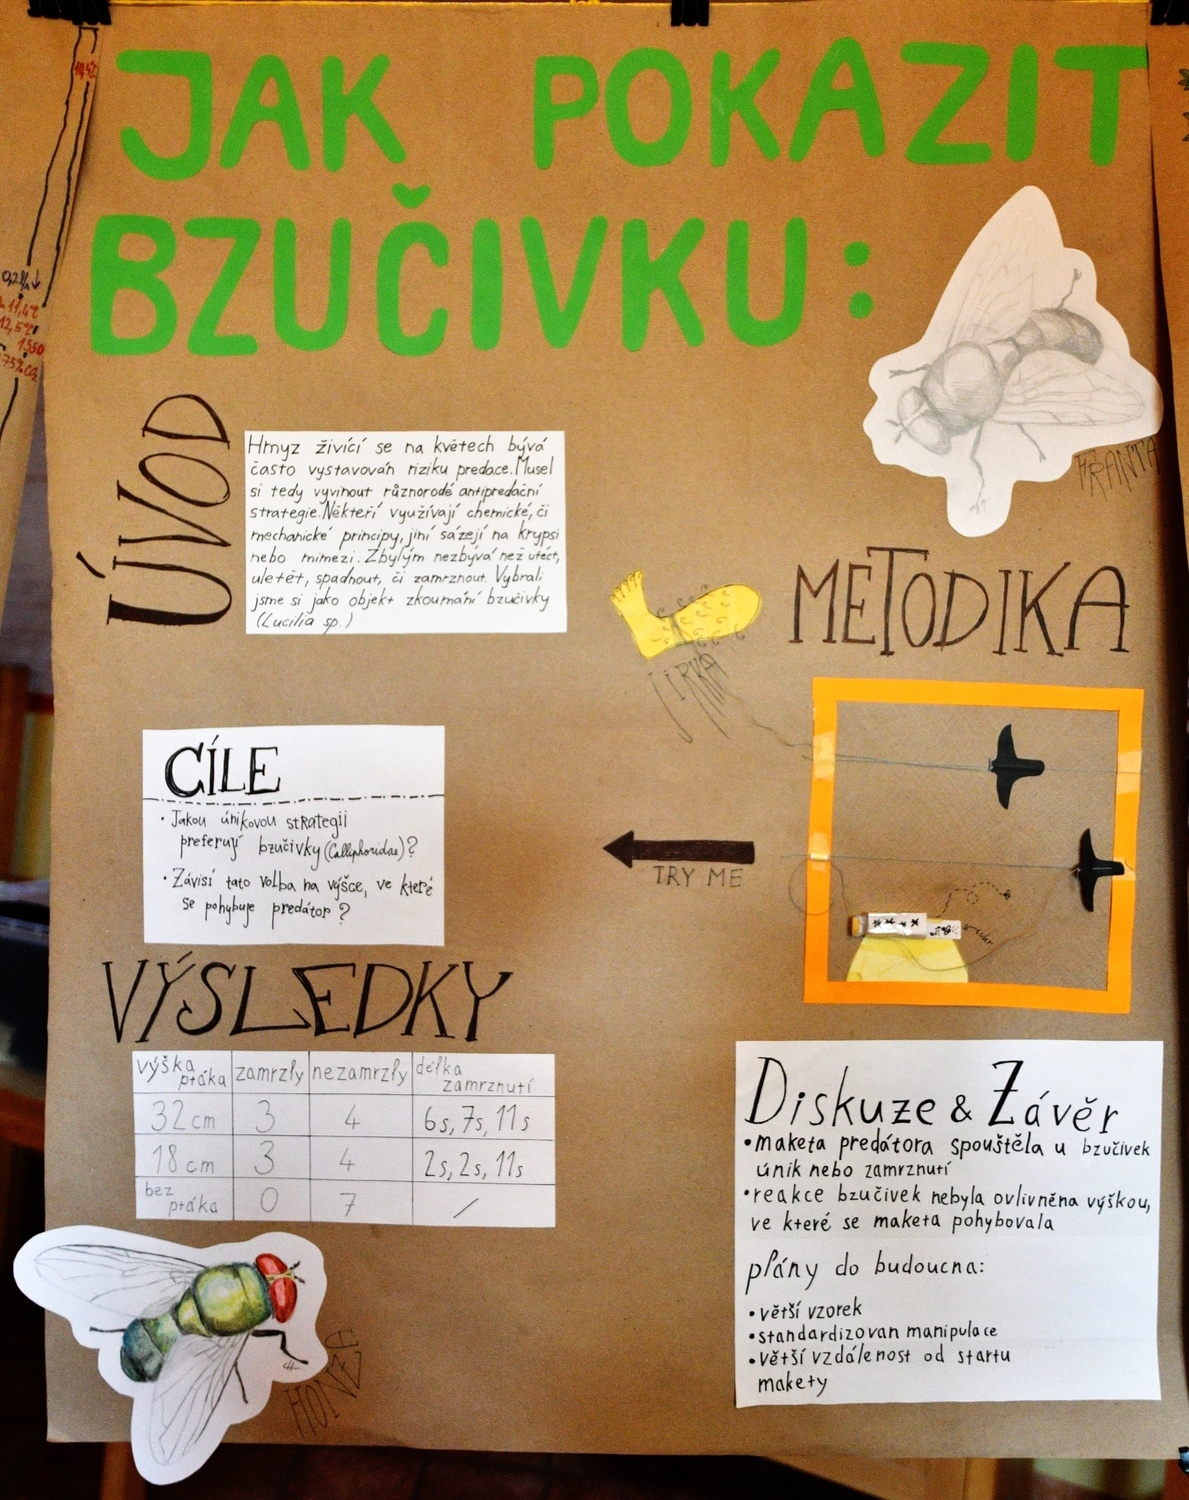 JAK POKAZIT
BZUČIVKU:
FRANTA
ÚVOD
Hmyz živící se na květech bývá
často vystavován riziku predace. Musel
si tedy vyvinout různorodé antipredační
strategie. Někteří využívají chemické, či
mechanické principy, jiní sázejí na krypsi
nebo mimezi. Zbylým nezbývá než utéct,
uletět, spadnout, či zamrznout. Vybrali
jsme si jako objekt zkoumání bzučivky
(Lucilia sp.)
METODIKA
JIRKA
TRY ME
CÍLE
• Jakou únikovou strategii
preferují bzučivky (Calliphoridae)?
• Závisí tato volba na výšce, ve které
se pohybuje predátor?
VÝSLEDKY
výška ptáka zamrzly nezamrzly délka zamrznutí
32 cm 3 4 6s, 7s, 11s
18 cm 3 4 2s, 2s, 11s
bez ptáka 0 7 /
HONZA
Diskuze & Závěr
• maketa predátora spouštěla u bzučivek
únik nebo zamrznutí
• reakce bzučivek nebyla ovlivněna výškou,
ve které se maketa pohybovala
plány do budoucna:
• větší vzorek
• standardizovan manipulace
• větší vzdálenost od startu
makety
0,2%
11,4°C
12,5°C
1550
75% CO2